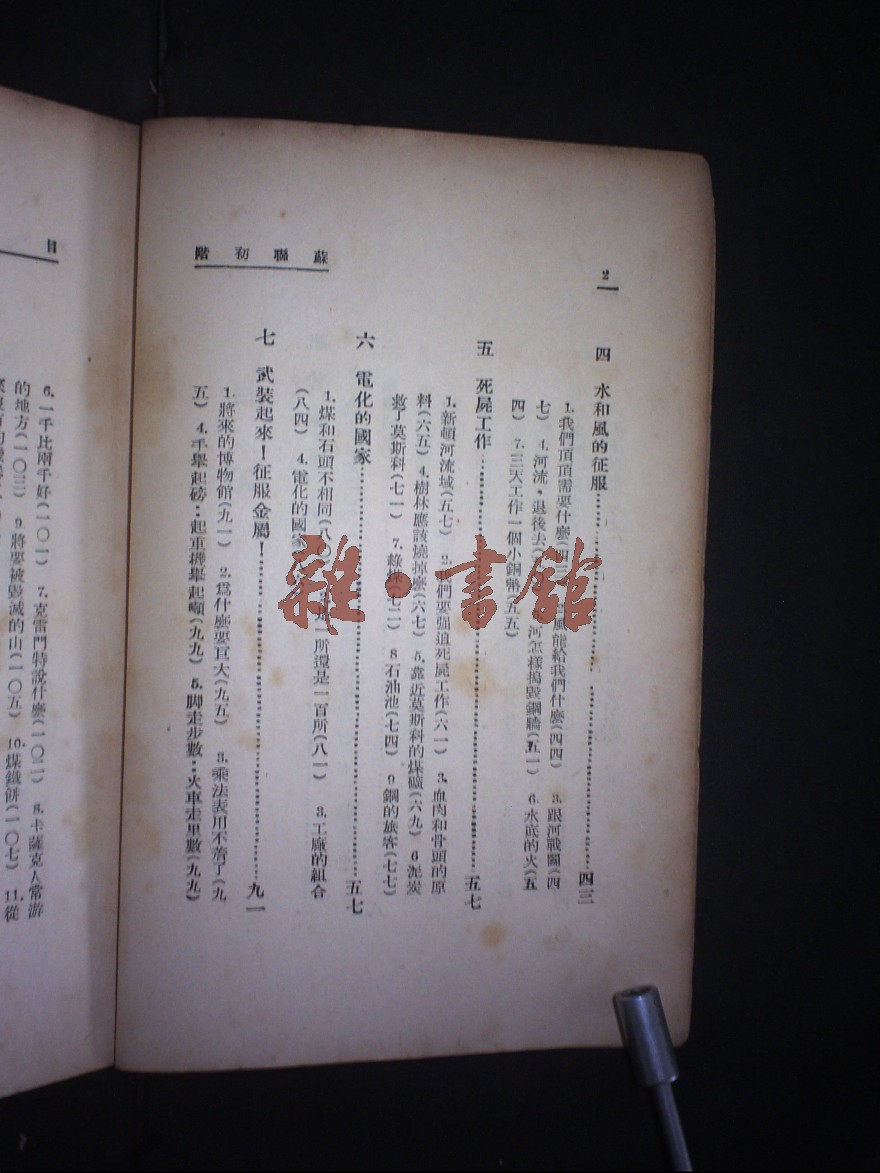 蘇聯初階
2
四 水和風的征服……四三
1. 我們頂頂需要什麼(四 風能給我們什麼(四四) 3. 跟河戰鬭(四
七) 4. 河流，退後去( 河怎樣搗毀鋼牆(五一) 6. 水底的火(五
四) 7. 三天工作一個小銅幣(五五)
五 死屍工作……五七
1. 新頓河流域(五七) 2. 我們要強迫死屍工作(六一) 3. 血肉和骨頭的原
料(六五) 4. 樹林應該燒掉麼(六七) 5. 靠近莫斯科的煤礦(六九) 6 泥炭
救了莫斯科(七一) 7. (七二) 8 石油池(七四) 9 鋼的旅客(七七)
六 電化的國家……五七
1. 煤和石頭不相同(八〇) 一所還是一百所(八一) 3. 工廠的組合
(八四) 4. 電化的國家
七 武裝起來！征服金屬！……九一
1. 將來的博物館(九一) 2. 爲什麼要巨大(九五) 3. 乘法表用不着了(九
五) 4. 千舉起磅：起重機舉起噸(九九) 5. 脚走步數：火車走里數(九九)
目
6. 一千比兩千好(一〇一) 7. 克雷門特說什麼(一〇二) 8. 卡薩克人常游
的地方(一〇三) 9. 將要被毀滅的山(一〇五) 10. 煤鐵餅(一〇七) 11. 從
雜·書館